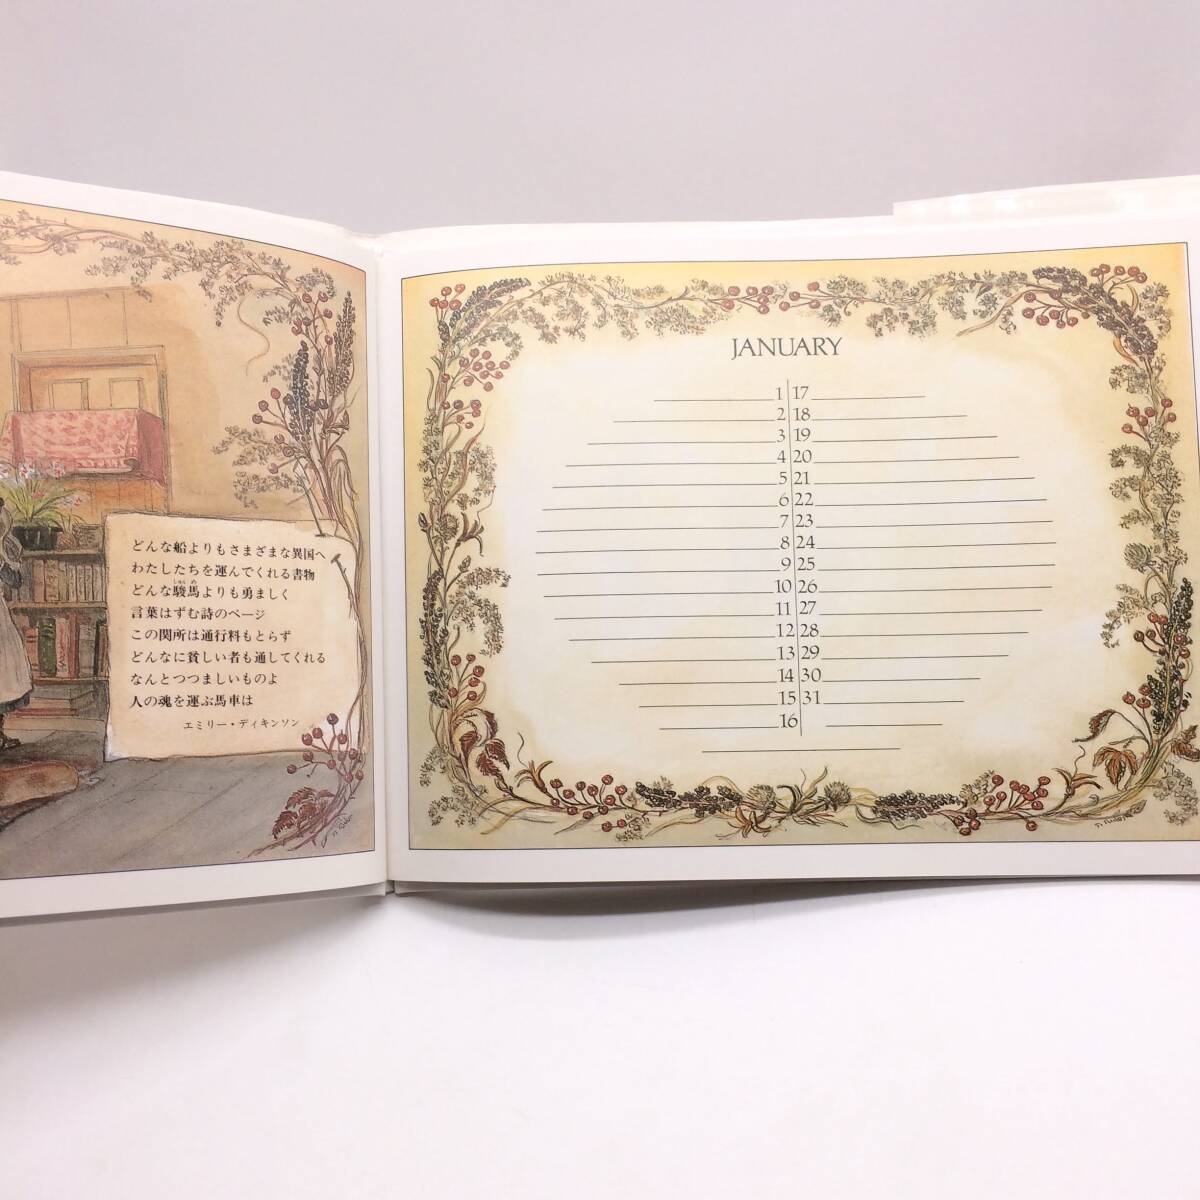 どんな船よりもさまざまな異国へ
わたしたちを運んでくれる書物
どんな駿馬よりも勇ましく
言葉はずむ詩のページ
この関所は通行料もとらず
どんなに貧しい者も通してくれる
なんとつつましいものよ
人の魂を運ぶ馬車は
エミリー・ディキンソン
JANUARY
1 17
2 18
3 19
4 20
5 21
6 22
7 23
8 24
9 25
10 26
11 27
12 28
13 29
14 30
15 31
16